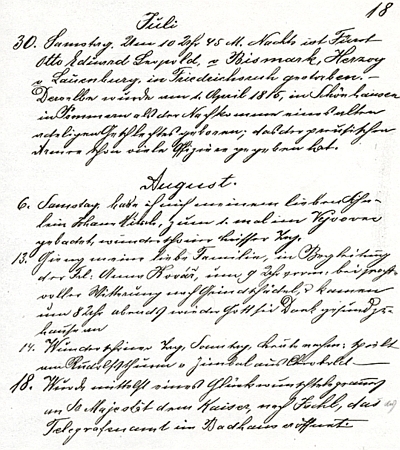 18
Juli
30. Samstag, Um 10 Uhr 45 M. Nachts ist Fürst
Otto Eduard Leopold, v Bismark, Herzog
v Lauenburg, in Friedrichsruh gestorben. –
Derselbe wurde am 1. April 1815, in Schönhausen
in Pommern als der Nachkomme eines alten
adeligen Geschlechtes geboren; das der preusischen
Armee schon viele Offiziere gegeben hat.
August.
6. Samstag habe ich mich meinem lieben
zum 1. mal im
gebadet, wunderschöner heisser Tag.
13. Gieng meine liebe Familie, in Begleitung
der Frl. Anna um 9 Uhr bei
voller Witterung nach kamen
um 8 Uhr abends wieder Gott sei Dank gesund
hause an
14. Wunderschöner Tag, Sonntag, spielt
am
18. Wurde mittelst eines Glückwunschtelegramm
an Se Majestät dem Kaiser, nach Ischl, das
Telegrafenamt im Badhaus eröffnet.